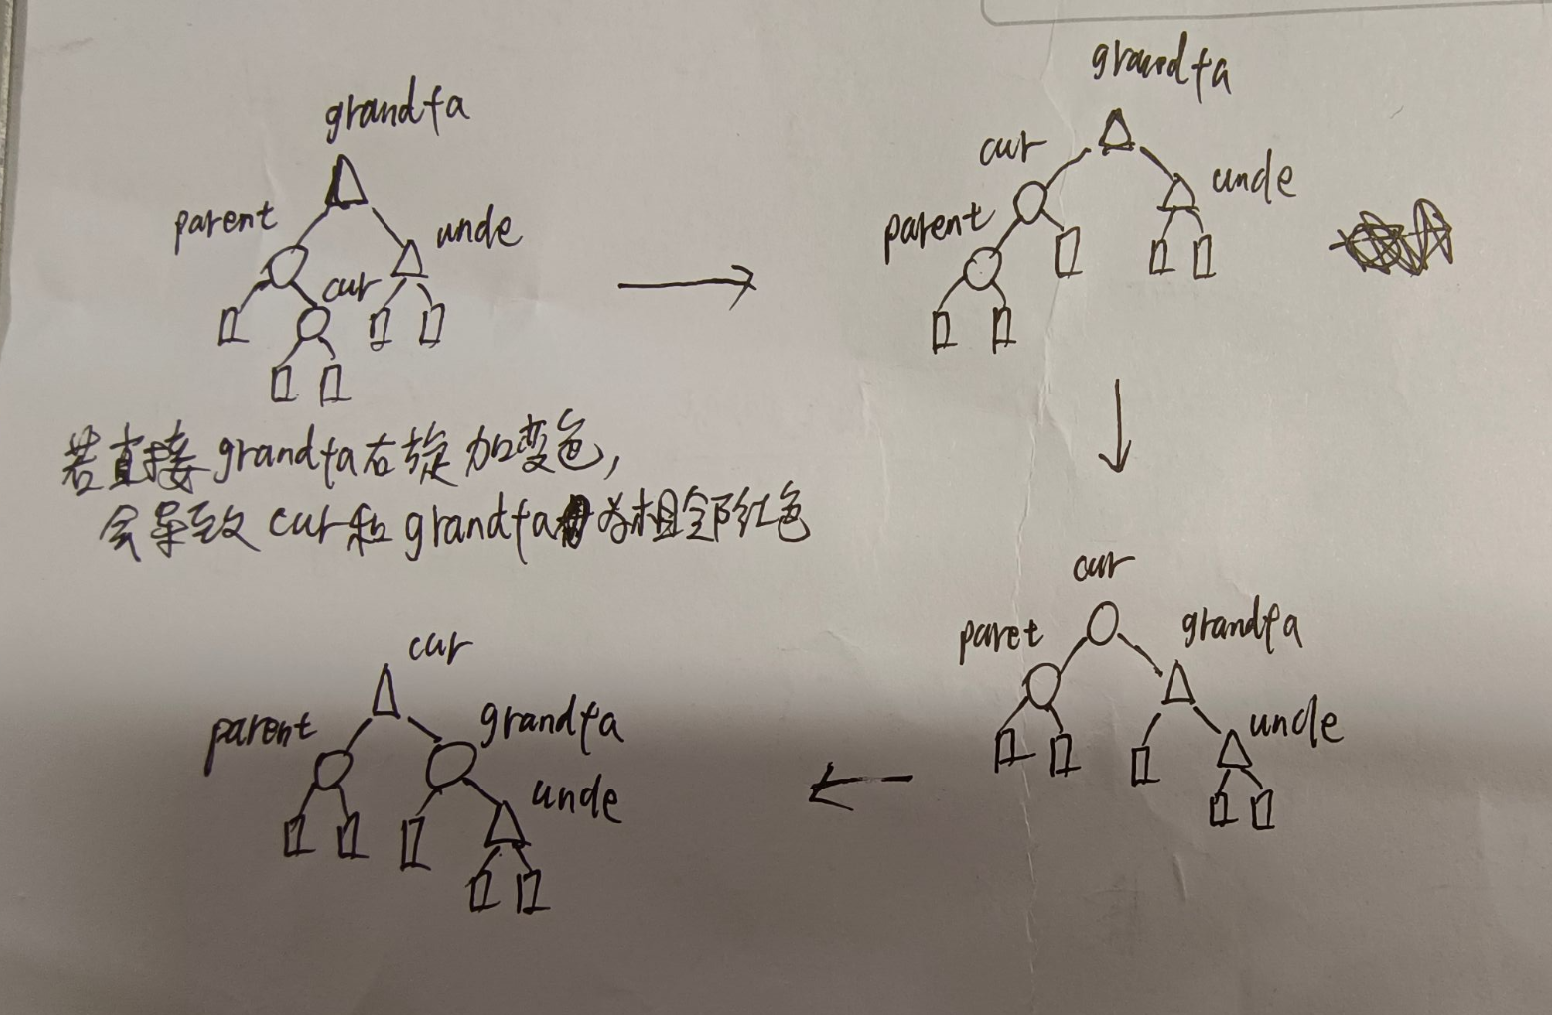 grandfa
parent
uncle
cur
grandfa
cur
uncle
parent
若直接grandfa右旋加变色,
会导致cur和grandfa为相邻红色
cur
paret
grandfa
uncle
cur
parent
grandfa
uncle